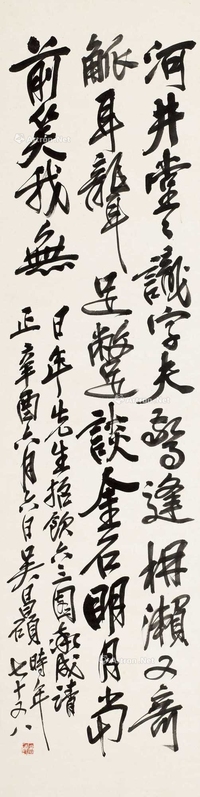 河井堂々識字夫驚逢枬瀨又奇
觚耳聾足蹩談金石明月當
前笑我無
日年先生招飲六三園率成請
正辛酉六月六日吳昌碩時年七十又八